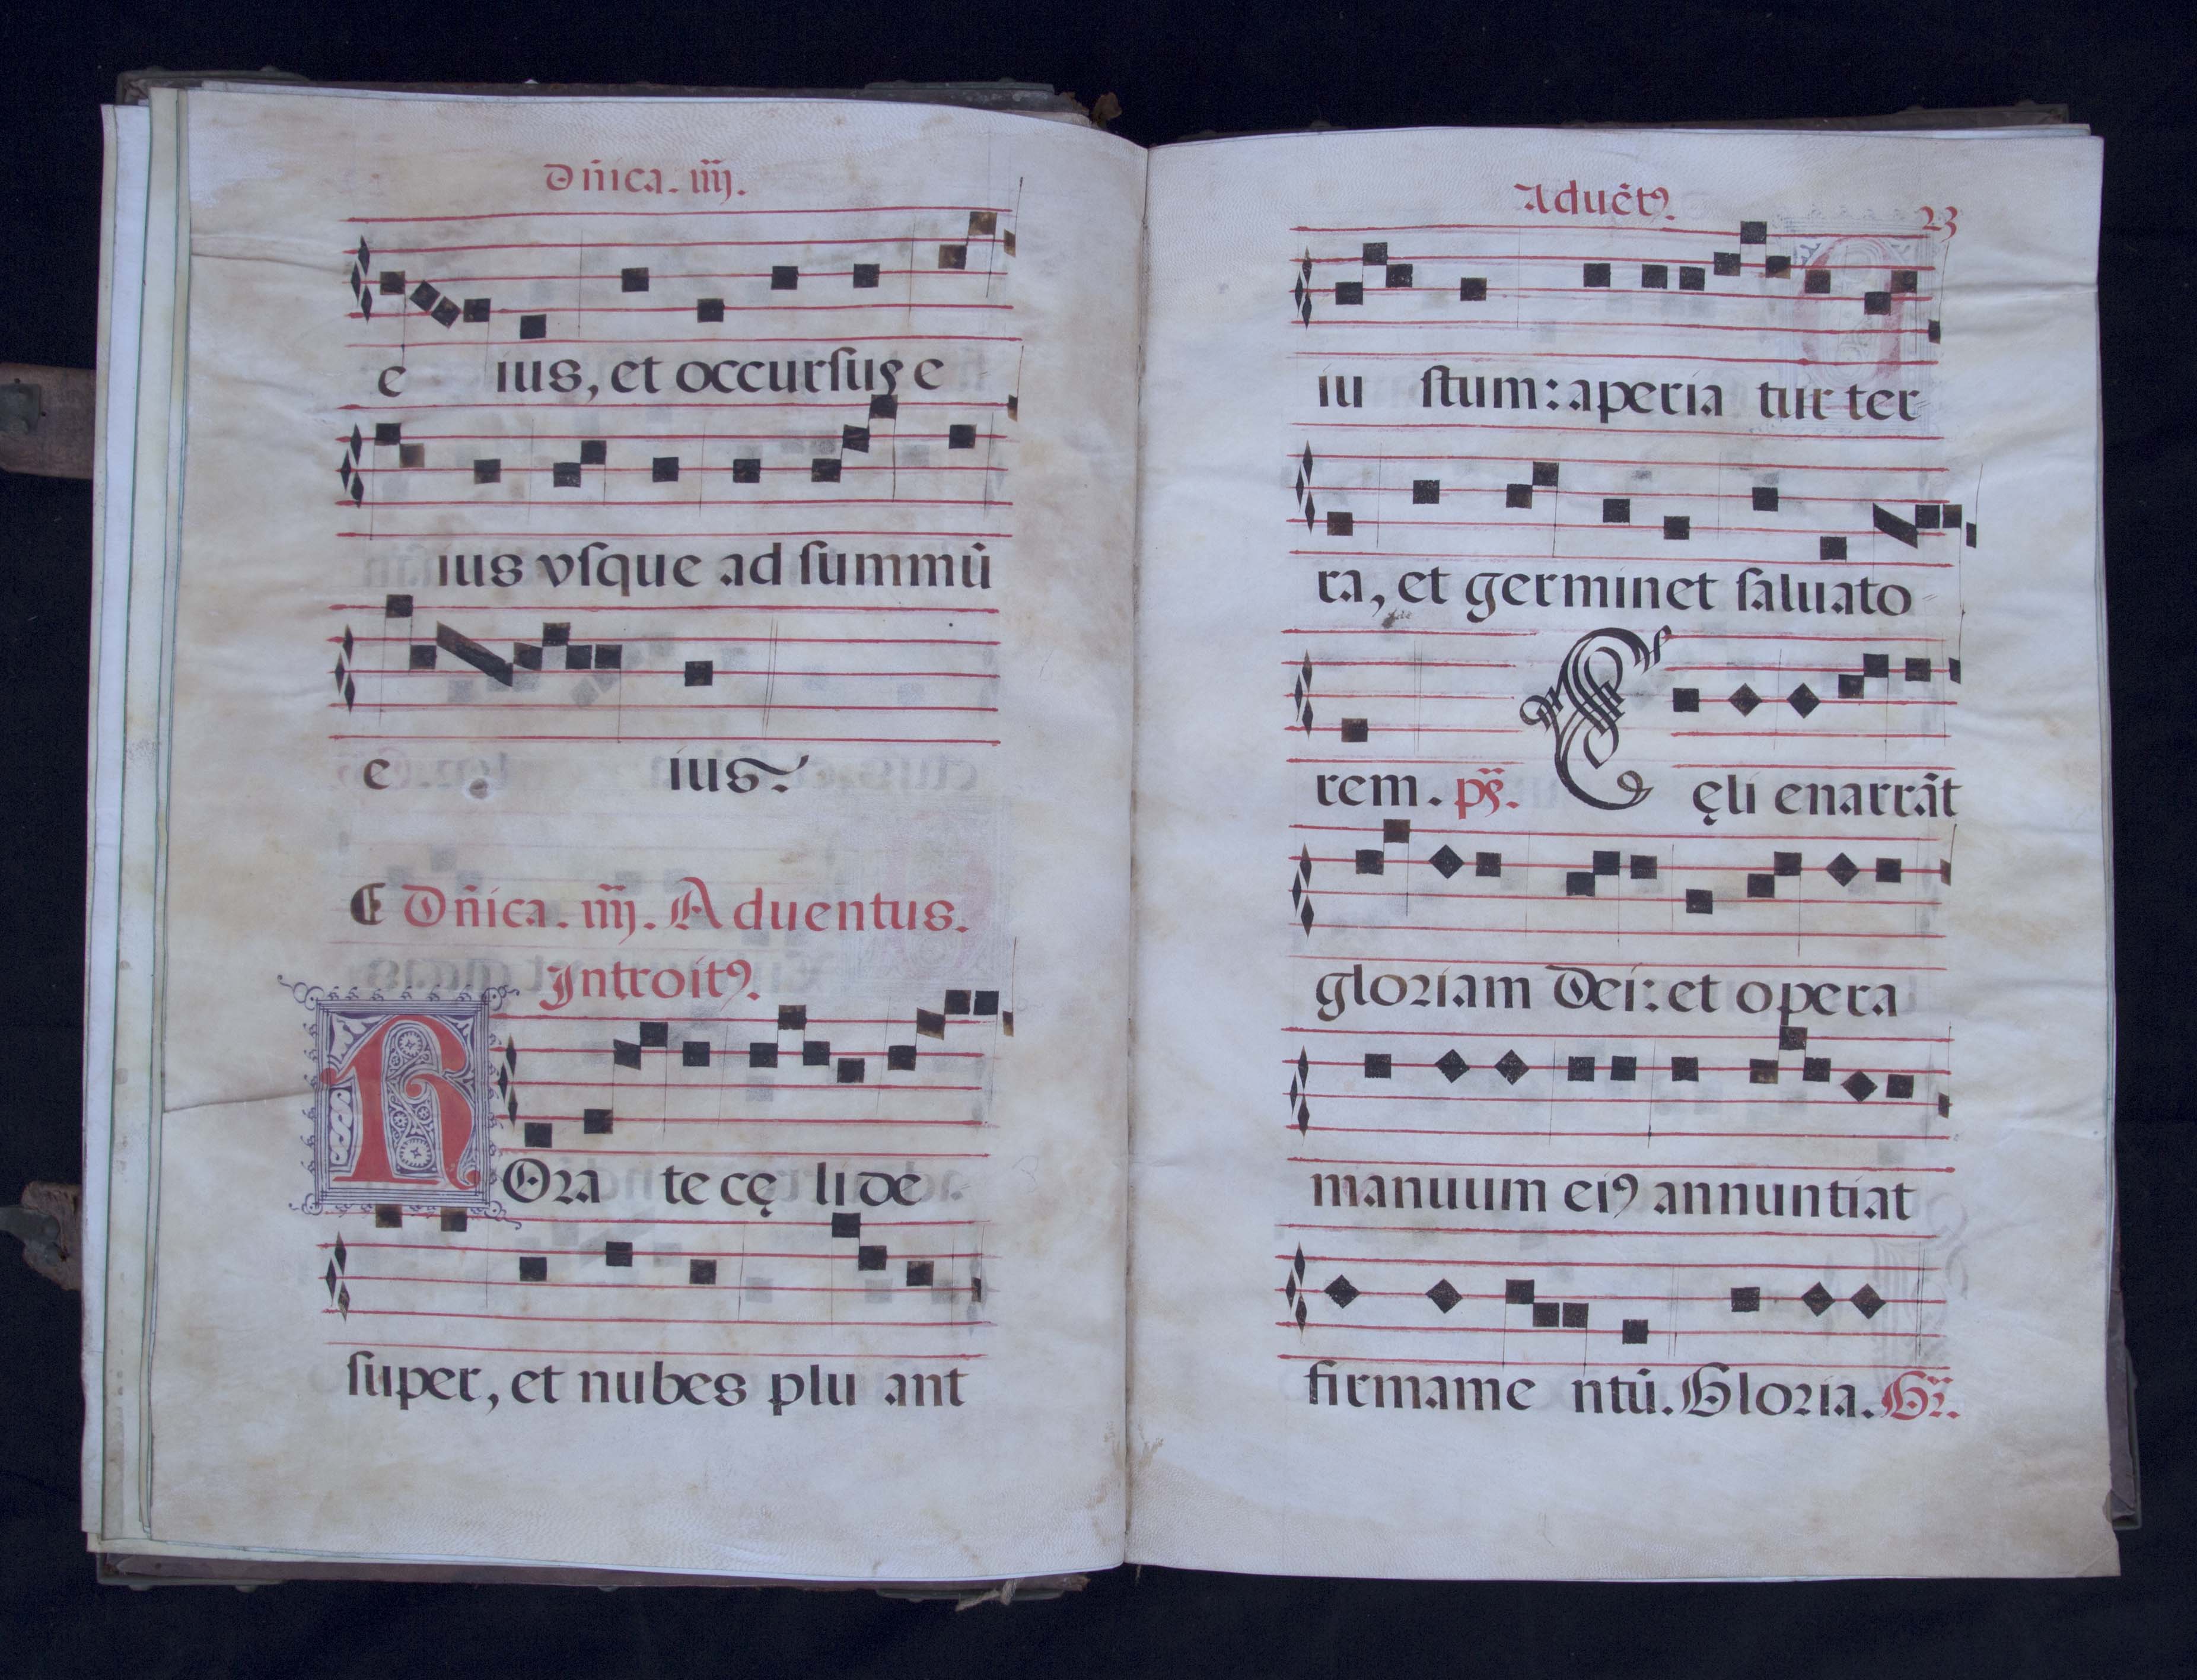 Dñica. iiij.
e ius, et occurſus e
ius vſque ad ſummū
e ius.
Dñica. iiij. Aduentus.
Introitꝯ.
ROra te cę li de
ſuper, et nubes plu ant
Aduētꝯ.
23
iu ſtum: aperia tur ter
ra, et germinet ſaluato
rem. ps. Cęli enarrāt
gloriam Dei: et opera
manuum eiꝯ annuntiat
firmame ntū. Gloria. Gr̄.